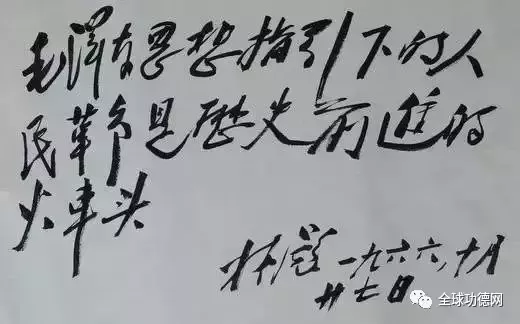 毛泽东思想指引下的人
民革命是歷史前進的
火車头
林彪 一九六六,十月
廿七日
全球功德网